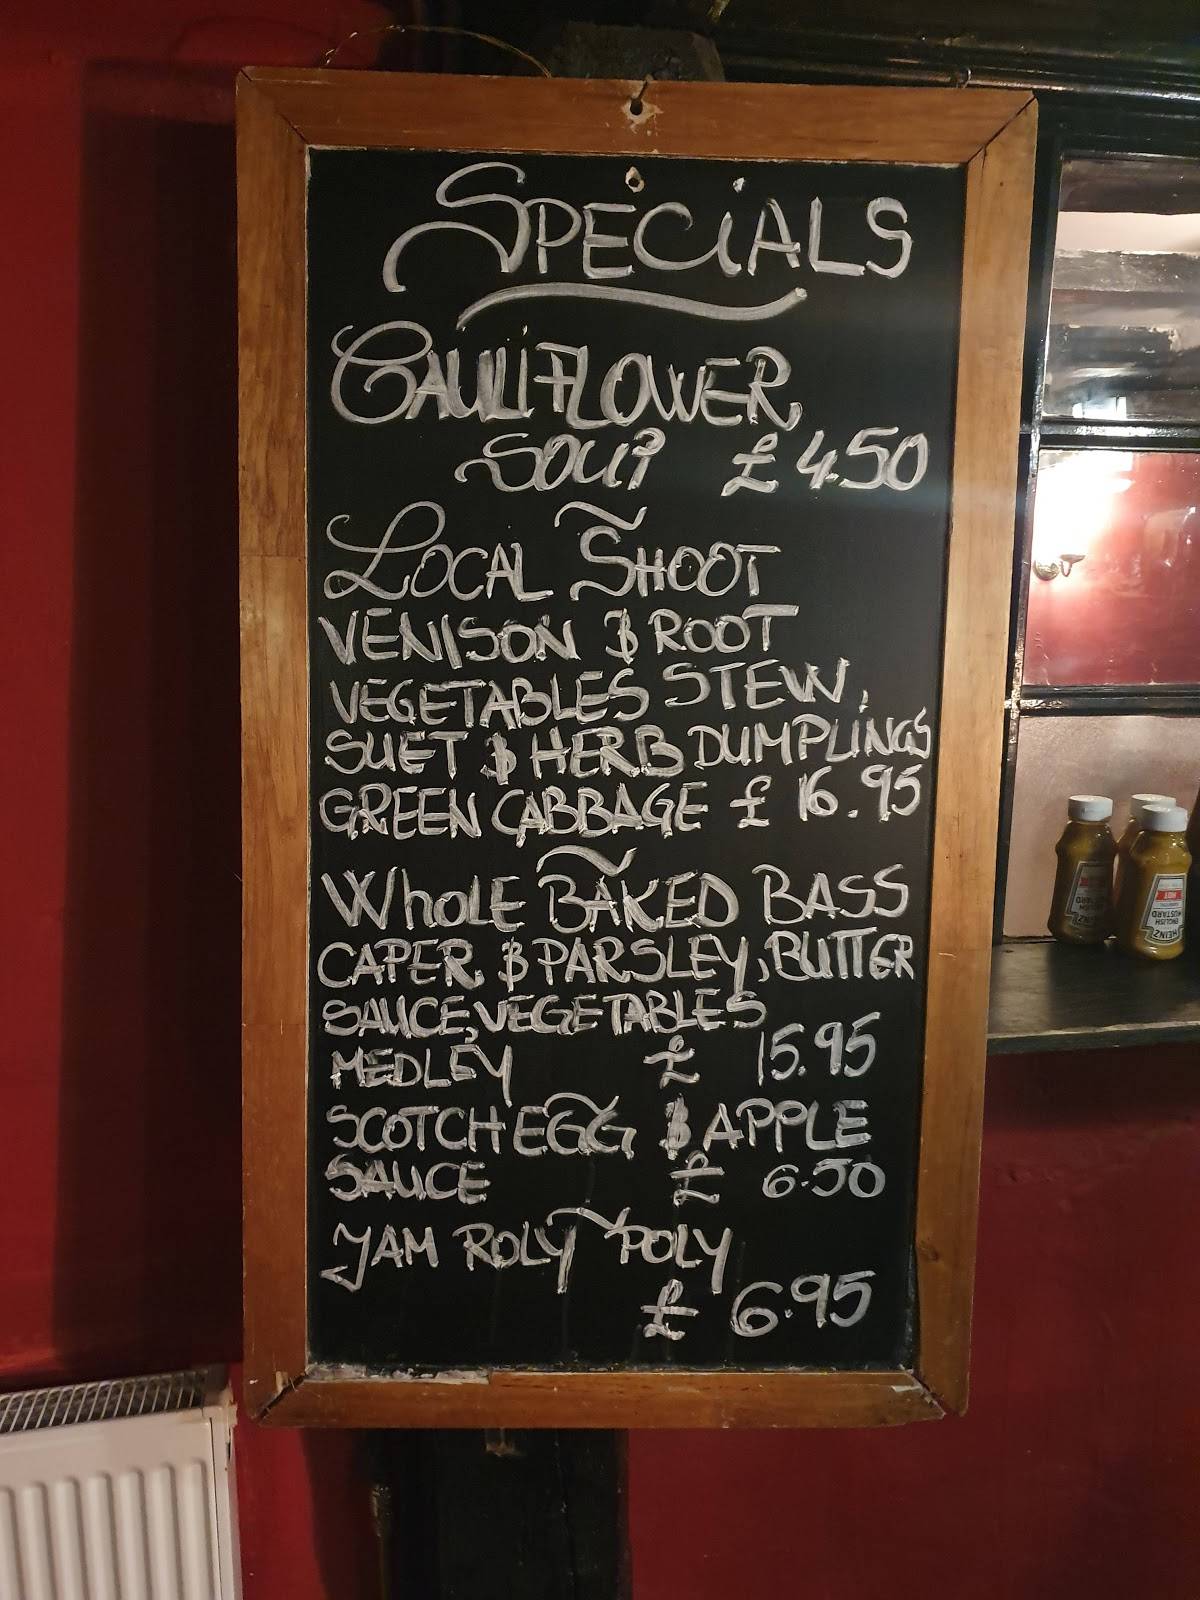 SPECIALS
CAULIFLOWER
SOUP £ 4.50
LOCAL SHOOT
VENISON & ROOT
VEGETABLES STEW,
SUET & HERB DUMPLINGS
GREEN CABBAGE £ 16.95
WhOLE BAKED BASS
CAPER & PARSLEY, BUTTER
SAUCE, VEGETABLES
MEDLEY £ 15.95
SCOTCH EGG & APPLE
SAUCE £ 6.50
JAM ROLY POLY
£ 6.95
HEINZ
ENGLISH
MUSTARD
HOT